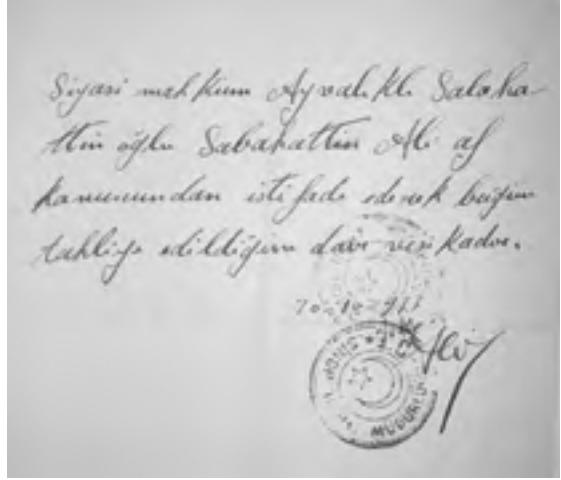 Siyasi mahkûm Ayvalıklı Salaha-
ttin oğlu Sabahattin Ali af
kanunundan istifade ederek bugün
tahliye edildiğine dair vesikadır.
SİNOP T.C.
MÜDÜR